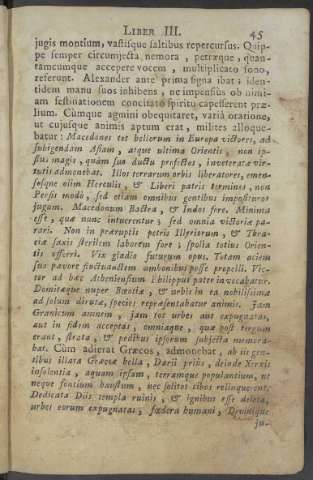 LIBER III. 45
jugis montium, vastisque saltibus repercursus. Quip-
pe semper circumjecta nemora, petræque, quan-
tamcumque accepere vocem, multiplicato sono,
referunt. Alexander ante prima signa ibat: iden-
tidem manu suos inhibens, ne impensius ob nimi-
am festinationem concitato spiritu capesserent præ-
lium. Cùmque agmini obequitaret, variâ oratione,
ut cujusque animis aptum erat, milites alloque-
batur: Macedones tot bellorum in Europa victores, ad
subigendam Asiam, atque ultima Orientis, non ip-
sius magis, quàm suo ductu profectos, inveteratæ vir-
tutis admonebat. Illos terrarum orbis liberatores, emen-
sosque olim Herculis, & Liberi patris terminos, non
Persis modò, sed etiam omnibus gentibus imposituros
jugum. Macedonum Bactra, & Indos fore. Minima
esse, quæ nunc intuerentur; sed omnia victoriâ pa-
rari. Non in præruptis petris Illyriorum, & Thra-
ciæ saxis sterilem laborem fore; spolia totius Orien-
tis offerri. Vix gladio futurum opus. Totam aciem
suo pavore fluctuantem umbonibus posse propelli. Vic-
tor ad hæc Atheniensium Philippus pater invocabatur.
Domitæque nuper Bœotiæ, & urbis in ea nobilissimæ
ad solum dirutæ, species repræsentabatur animis. Jam
Granicum amnem, jam tot urbes aut expugnatas,
aut in fidem acceptas, omniaque, quæ post tergum
erant, strata, & pedibus ipsorum subjecta memora-
bat. Cùm adierat Græcos, admonebat, ab iis gen-
tibus illata Græciæ bella, Darii priùs, deinde Xerxis
insolentia, aquam ipsam, terramque populantium, ut
neque fontium haustum, nec solitos cibos relinquerent.
Dedicata Diis templa ruinis, & ignibus esse deleta,
urbes eorum expugnatas; fœdera humani, Divinique
ju-